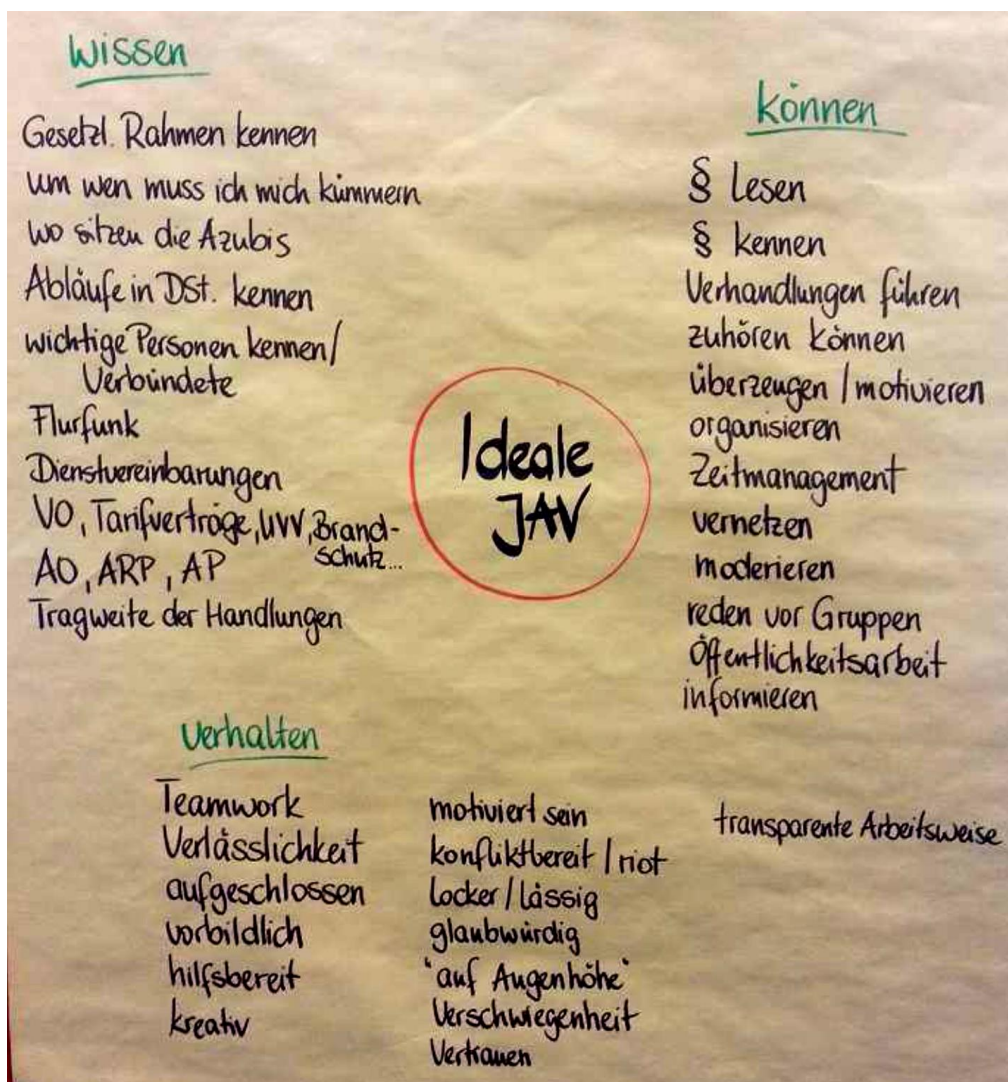 Wissen
Gesetzl. Rahmen kennen
um wen muss ich mich kümmern
wo sitzen die Azubis
Abläufe in DSt. kennen
wichtige Personen kennen/
Verbündete
Flurfunk
Dienstvereinbarungen
VO, Tarifverträge, UVV, Brand-
schutz...
AO, ARP, AP
Tragweite der Handlungen
Ideale
JAV
können
§ Lesen
§ kennen
Verhandlungen führen
zuhören können
überzeugen / motivieren
organisieren
Zeitmanagement
vernetzen
moderieren
reden vor Gruppen
Öffentlichkeitsarbeit
informieren
Verhalten
Teamwork
Verlässlichkeit
aufgeschlossen
vorbildlich
hilfsbereit
kreativ
motiviert sein
konfliktbereit / riot
locker / lässig
glaubwürdig
"auf Augenhöhe"
Verschwiegenheit
Vertrauen
transparente Arbeitsweise